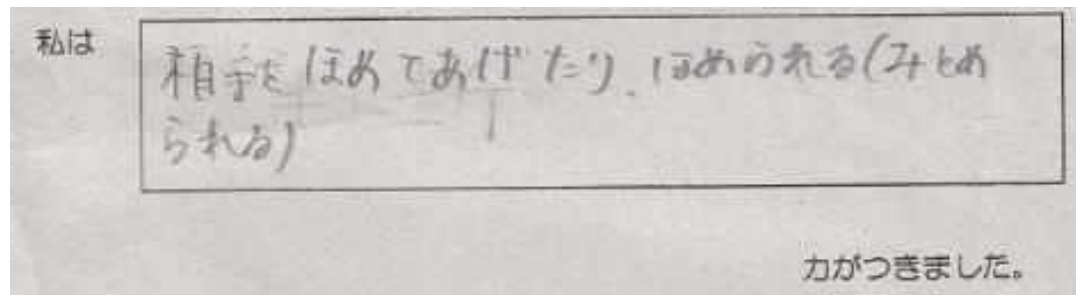 私は
相手をほめてあげたり、ほめられる(みとめ
られる)
力がつきました。